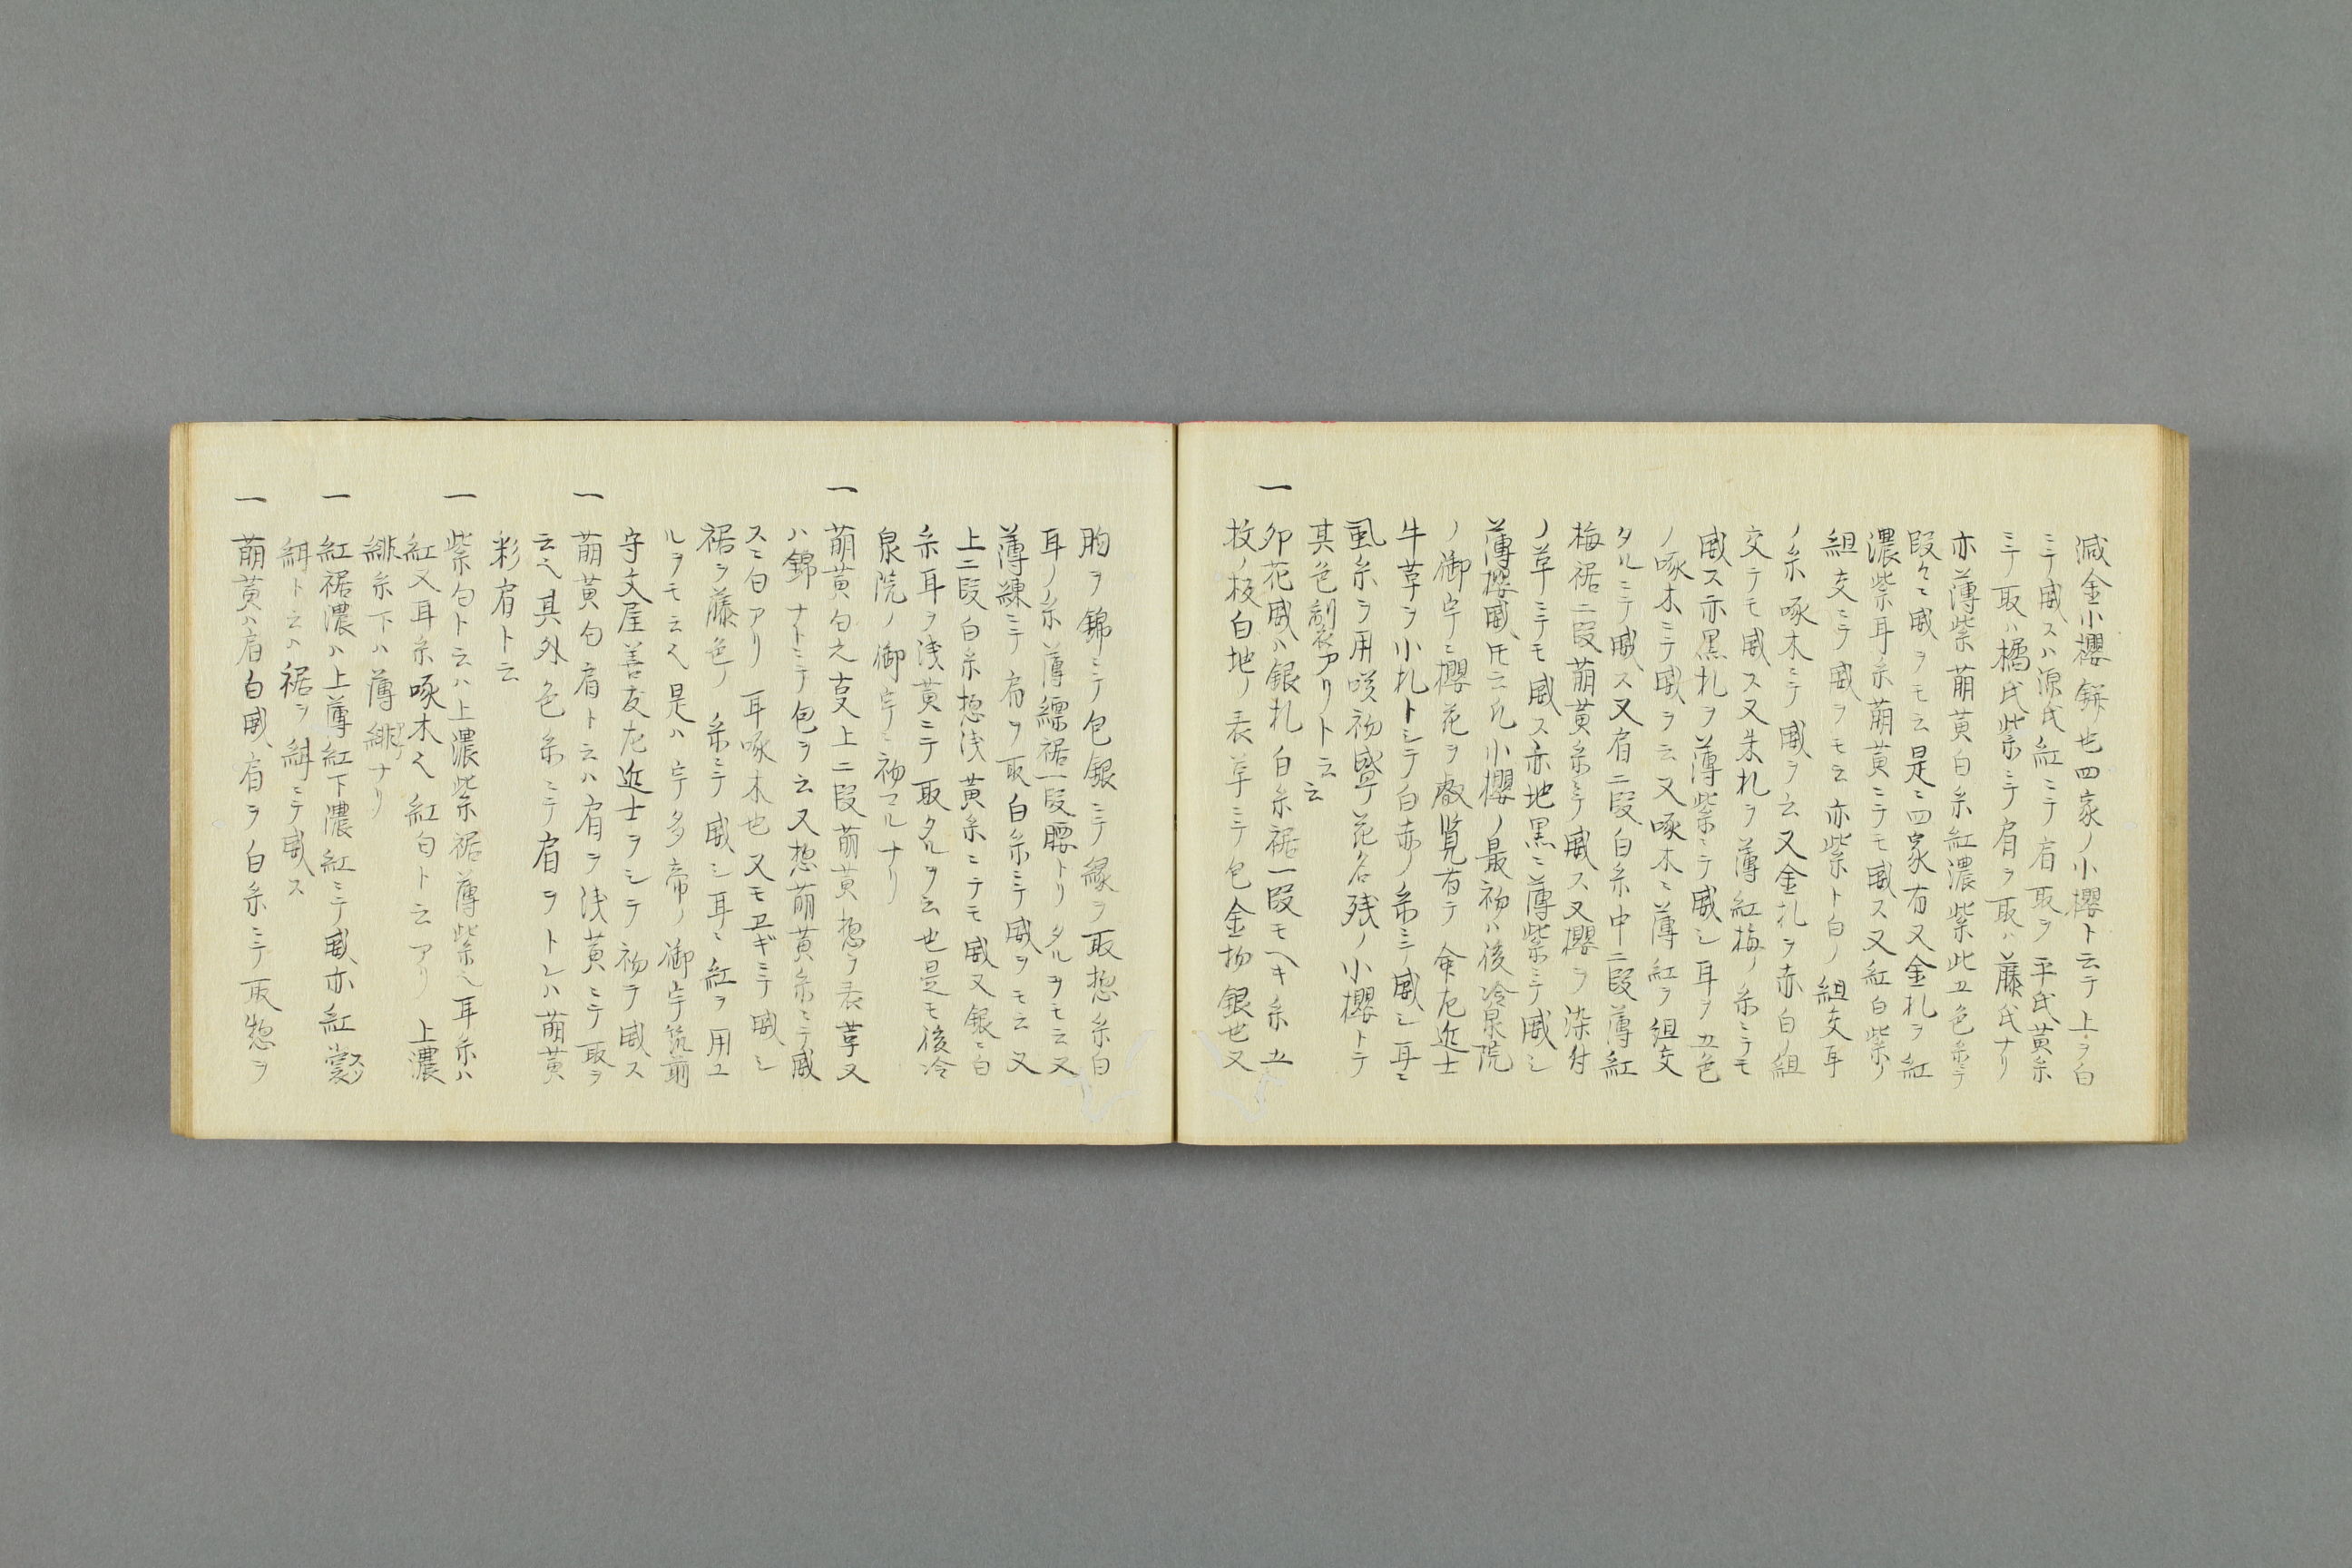 滅金小櫻餅也四家ノ小櫻ト云テ上ヲ白
ニテ威スハ源氏紅ニテ肩取ヲ平氏黄糸
ニテ取ハ橘氏紫ニテ肩ヲ取ハ藤氏ナリ
亦薄紫萠黄白糸紅濃紫此五色糸ニテ
段々ニ威ヲモ云是ニ四家有又金札ヲ紅
濃紫耳糸萠黄ニテモ威ス又紅白紫ノ
組交ニテ威ヲモ云亦紫ト白ノ組交耳
ノ糸啄木ニテ威ヲ云又金札ヲ赤白ノ組
交テモ威ス又朱札ヲ薄紅梅ノ糸ニテモ
威ス亦黒札ヲ薄紫ニテ威シ耳ヲ五色
ノ啄木ニテ威ヲ云又啄木ニ薄紅ヲ組交
タルニテ威ス又肩二段白糸中二段薄紅
梅裾二段萠黄糸ニテ威ス又櫻ヲ染付
ノ草ニテモ威ス亦地黒ニ薄紫ニテ威シ
薄櫻威トモ云凡小櫻ノ最初ハ後冷泉院
ノ御宇ニ櫻花ヲ叡覧有テ命左近士
牛草ヲ小札トシテ白赤ノ糸ニテ威シ耳ニ
虱糸ヲ用咲初盛リ花名残ノ小櫻トテ
其色制アリト云云
一 卯花威ハ銀札白糸裾一段モヘキ糸五
枚ノ板白地ノ表草ニテ包金物銀也又
胸ヲ錦ニテ包銀ニテ縁ヲ取惣糸白
耳ノ糸薄縹裾一段腰トリタルヲモ云又
薄練ニテ肩ヲ取白糸ニテ威ヲモ云又
上二段白糸惣浅黄糸ニテモ威又銀ニ白
糸耳ヲ浅黄ニテ取タルヲ云也是モ後冷
泉院ノ御宇ニ初マルナリ
一 萠黄匂之事上二段萠黄惣ヲ表草又
ハ錦ナトニテ包ヲ云又惣萠黄糸ニテ威
スニ白アリ耳啄木也又モヱギニテ威シ
裾ヲ藤色ノ糸ニテ威シ耳ニ紅ヲ用ユ
ルヲモ云之是ハ宇多帝ノ御宇筑前
守文屋善友左近士ヲシテ初テ威ス
一 萠黄匂肩ト云ハ肩ヲ浅黄ニテ取ヲ
云之其外色糸ニテ肩ヲトレハ萠黄
彩肩ト云
一 紫匂ト云ハ上濃紫裾薄紫之耳糸ハ
紅又耳糸啄木之紅匂ト云アリ上濃
緋糸下ハ薄緋ナリ
一 紅裾濃ハ上薄紅下濃紅ニテ威亦紅裳
緋ト云ハ裾ヲ緋ニテ威ス
一 萠黄ハ肩白威肩ヲ白糸ニテ取惣ヲ